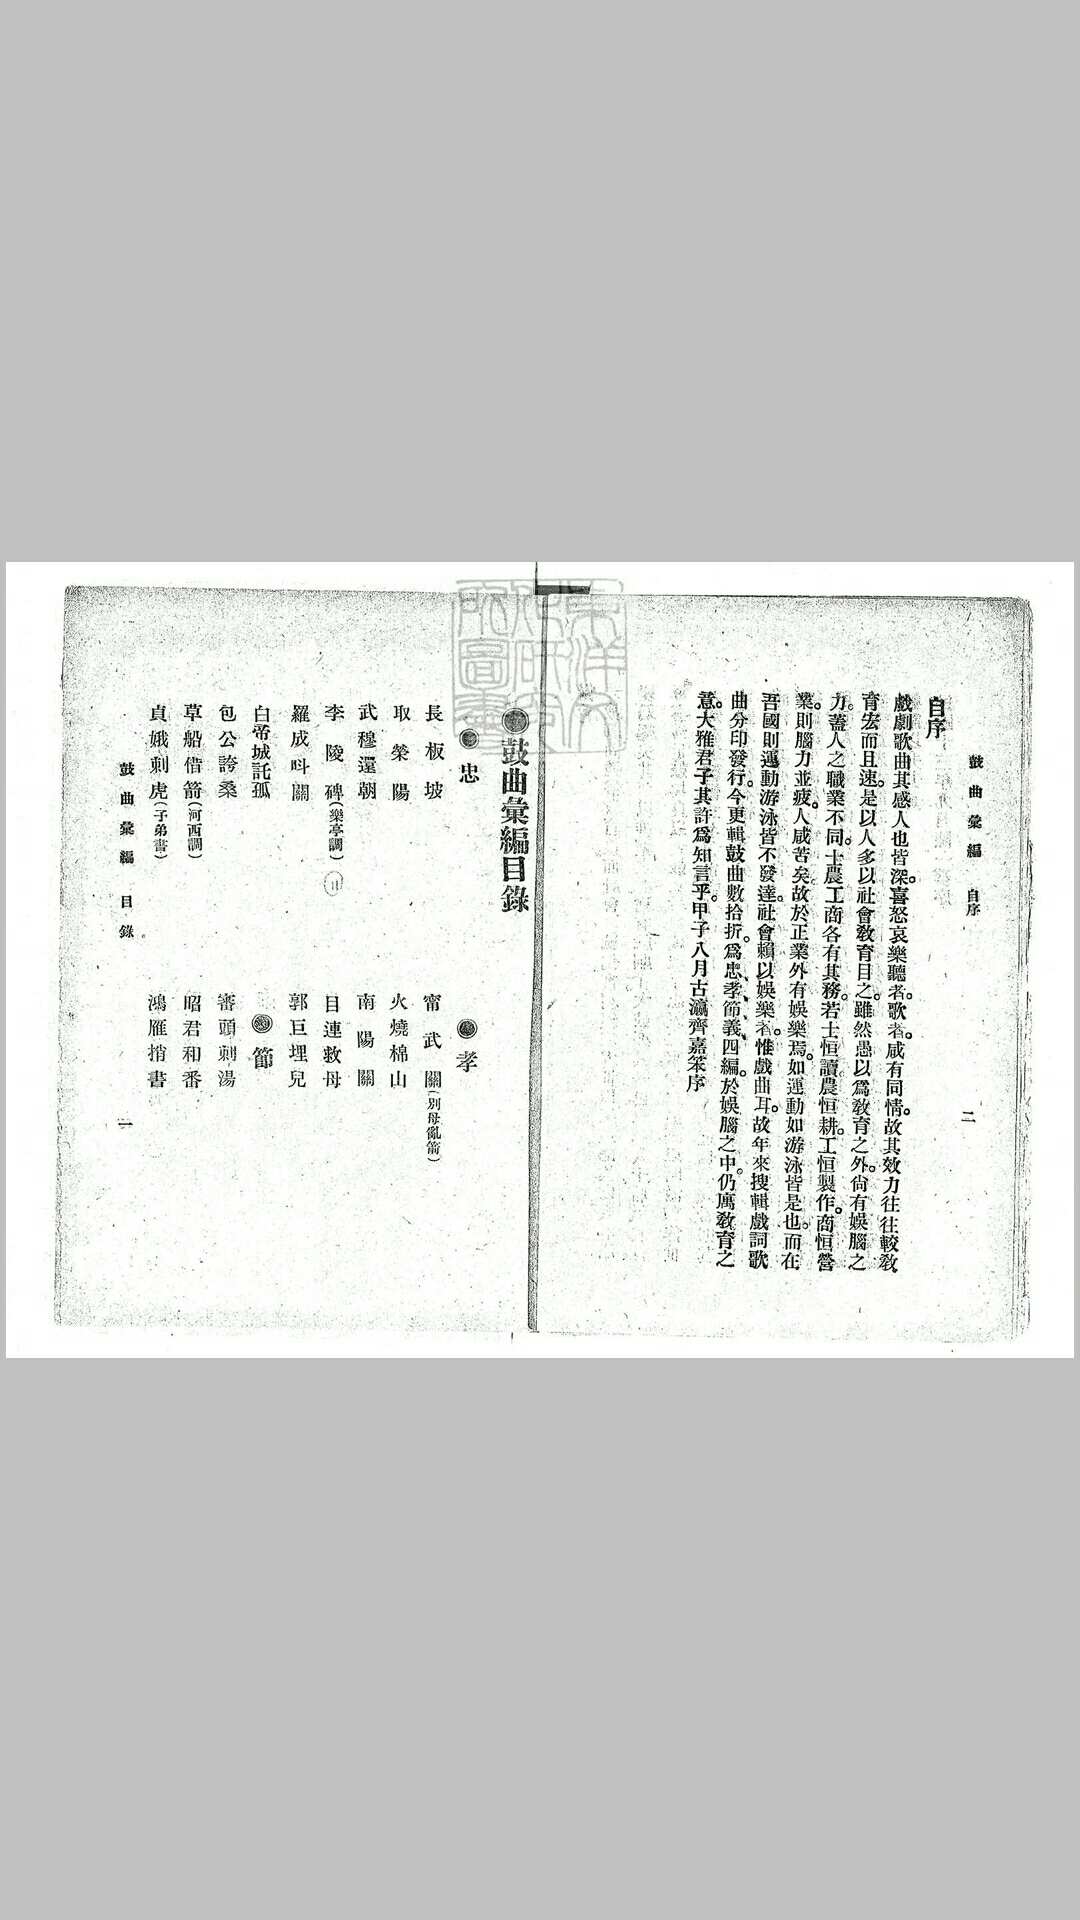 鼓曲彙編 自序 二
自序
戲劇歌曲其感人也皆深。喜怒哀樂聽者。歌者。咸有同情。故其效力往往較敎
育宏而且速。是以人多以社會敎育目之。雖然愚以爲敎育之外。尙有娛腦之
力。蓋人之職業不同。士農工商各有其務。若士恒讀。農恒耕。工恒製作。商恒營
業。則腦力並疲。人咸苦矣。故於正業外有娛樂焉。如運動如游泳皆是也。而在
吾國則運動游泳皆不發達。社會賴以娛樂者。惟戲曲耳。故年來搜輯戲詞歌
曲分印發行。今更輯鼓曲數拾折。爲忠、孝、節、義、四編。於娛腦之中。仍寓敎育之
意。大雅君子其許爲知言乎。甲子八月古瀛齊嘉笨序
鼓曲彙編目錄
忠
長板坡
取滎陽
武穆還朝
李陵碑(樂亭調)
羅成叫關
白帝城託孤
包公誇桑
草船借箭(河西調)
貞娥刺虎(子弟書)
孝
甯武關(別母亂箭)
火燒棉山
南陽關
目連救母
郭巨埋兒
節
審頭刺湯
昭君和番
鴻雁捎書
鼓曲彙編 目錄 一